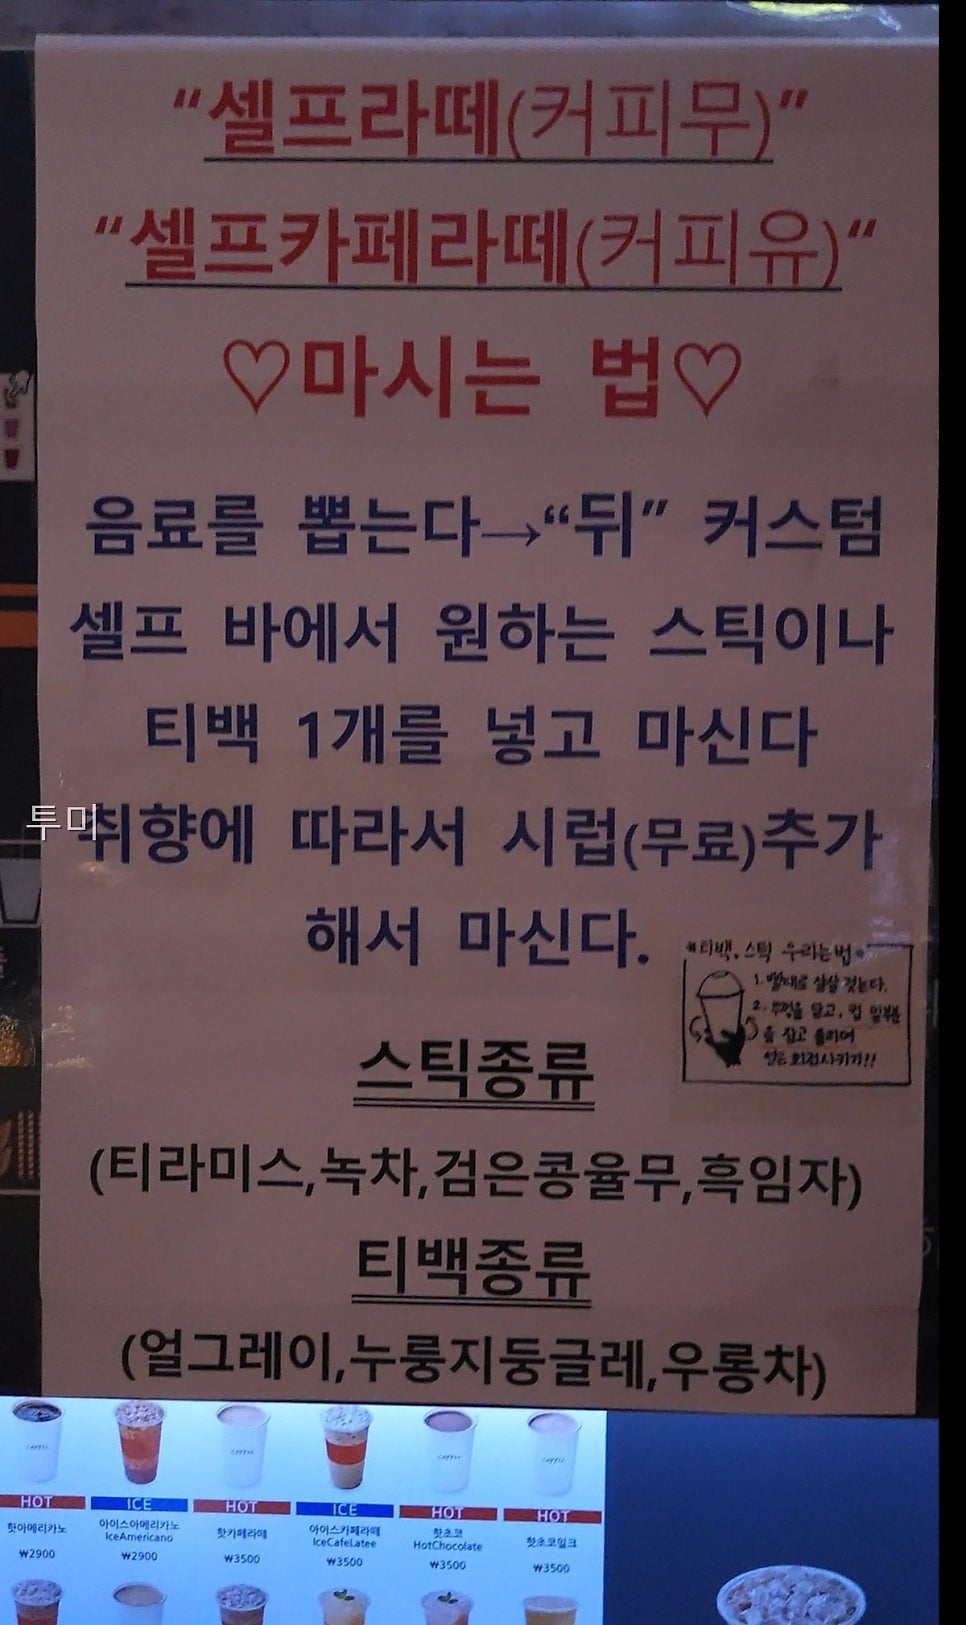 “셀프라떼(커피무)”
“셀프카페라떼(커피유)“
♡마시는 법♡
음료를 뽑는다→“뒤” 커스텀
셀프 바에서 원하는 스틱이나
티백 1개를 넣고 마신다
투미
취향에 따라서 시럽(무료)추가
해서 마신다.
*티백, 스틱 우리는법*
1. 빨대로 살살 젓는다.
2. 뚜껑을 닫고, 컵 윗부분
을 잡고 돌리며
얼음 회전시키기!!
스틱종류
(티라미스,녹차,검은콩율무,흑임자)
티백종류
(얼그레이,누룽지둥글레,우롱차)
HOT ICE HOT ICE HOT HOT
핫아메리카노 아이스아메리카노 핫카페라떼 아이스카페라떼 핫초코 핫초코밀크
IceAmericano IceCafeLatee HotChocolate
₩2900 ₩2900 ₩3500 ₩3500 ₩3500 ₩3500